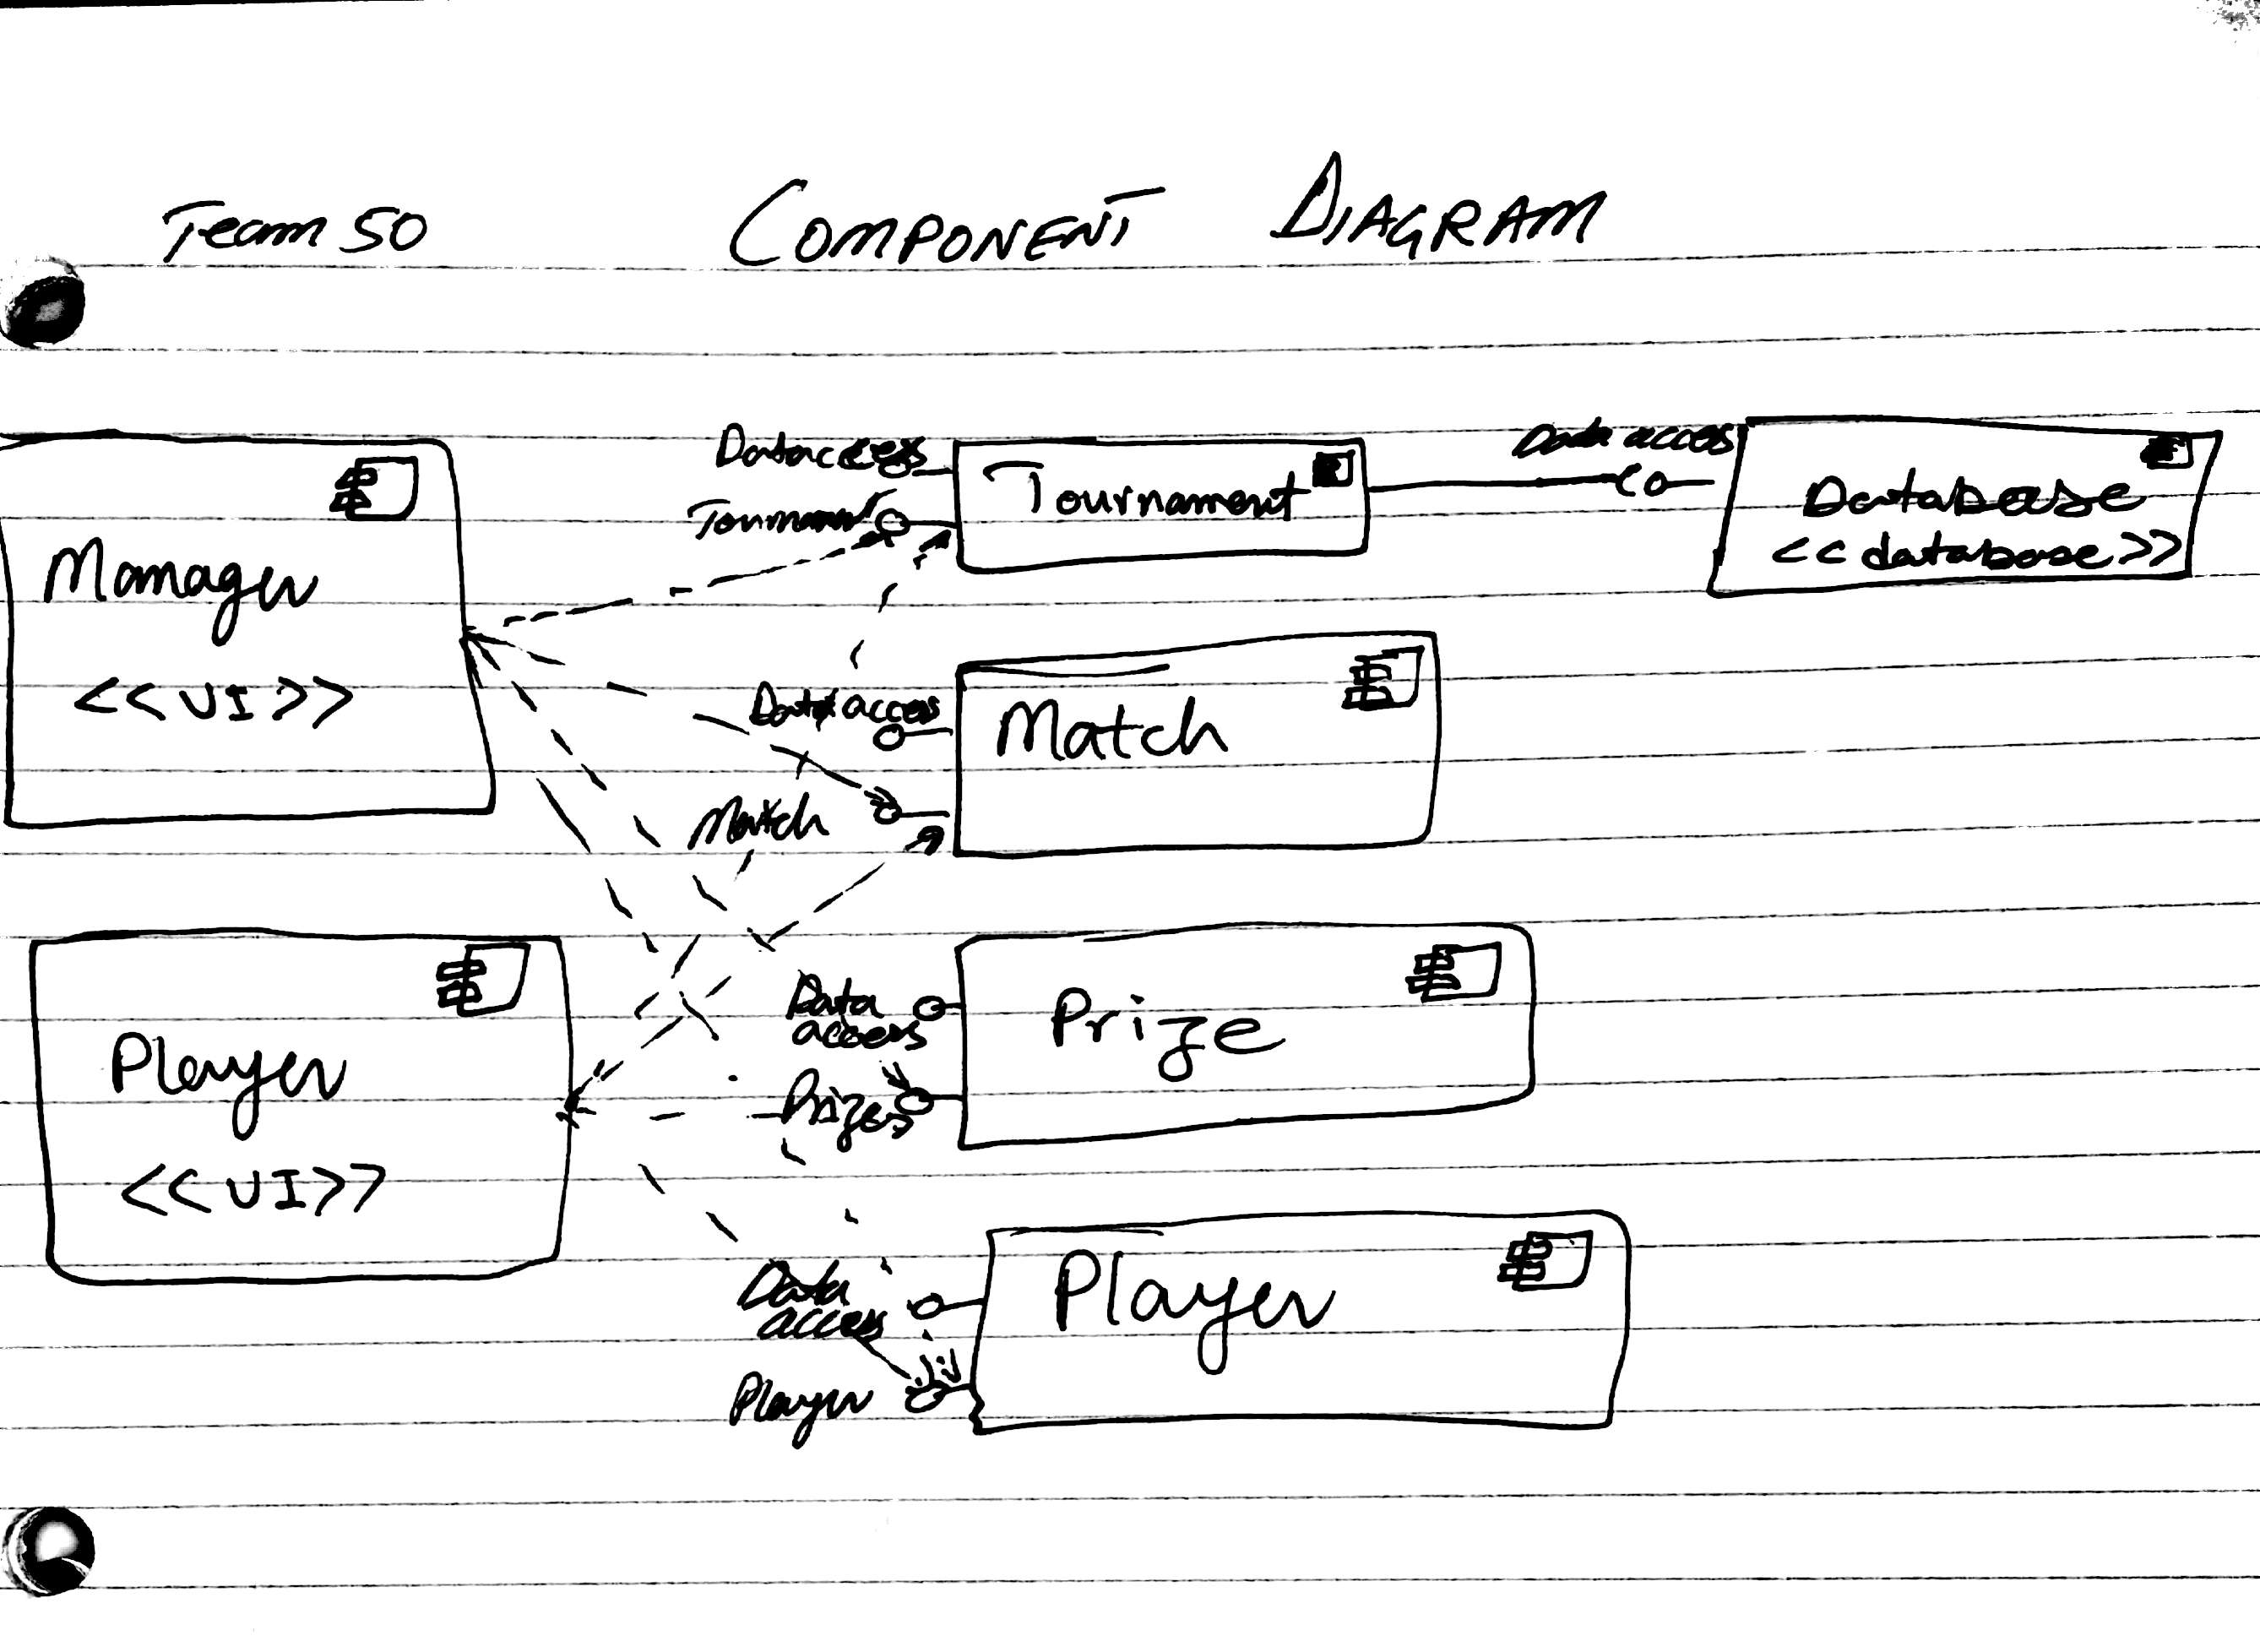 Team 50
COMPONENT DIAGRAM
Manager
<<UI>>
Player
<<UI>>
Tournament
Data acces
Database
<<database>>
Data access
Match
Match
Data
access
Prizes
Prize
Data
access
Player
Player